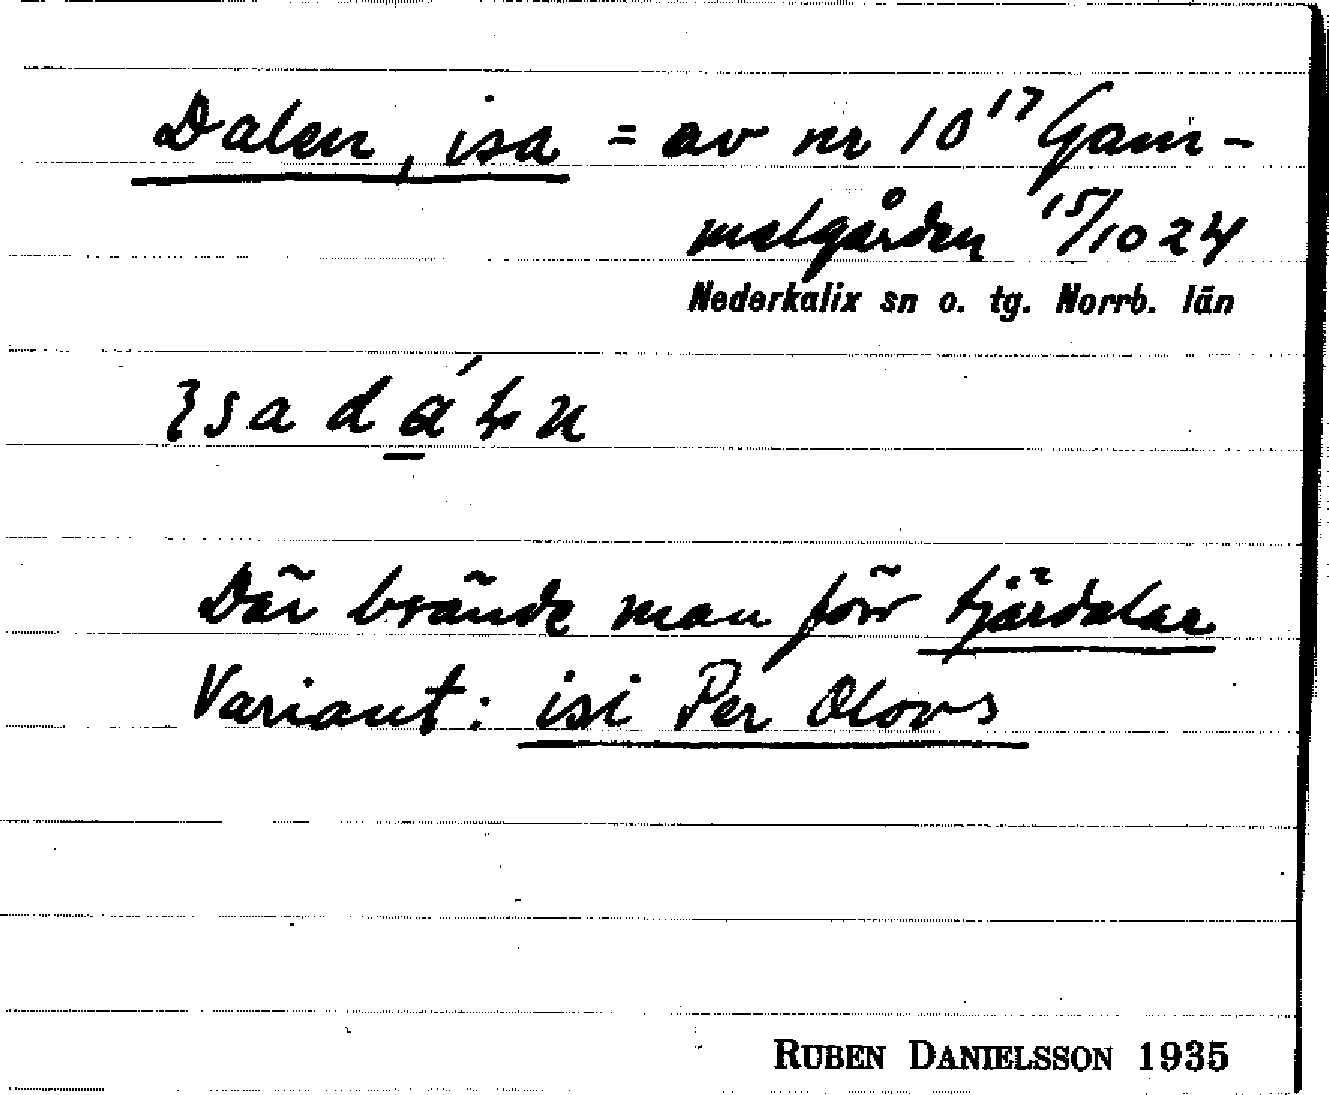 Dalen, isa = av nr 10¹⁷ Gam-
melgården 15/10 24
Nederkalix sn o. tg. Norrb. län
Där brände man förr tjärdalar
Variant: isi Per Olovs
RUBEN DANIELSSON 1935